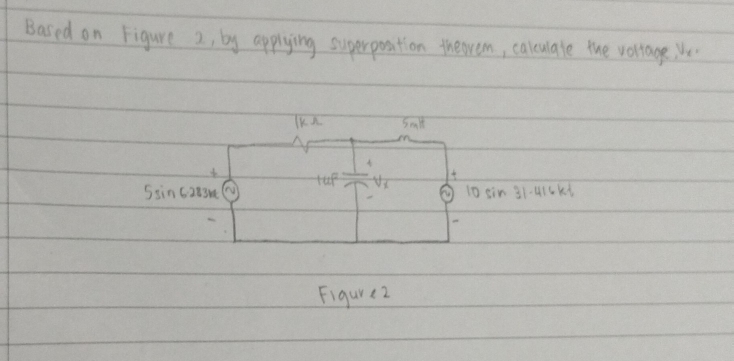 Based on Figure 2, by applying superposition theorem, calculate the voltage, Vx.
1kΩ
5mH
+
+
+
1uF
Vx
5sin
10 sin 31.416kt
-
-
-
Figure 2